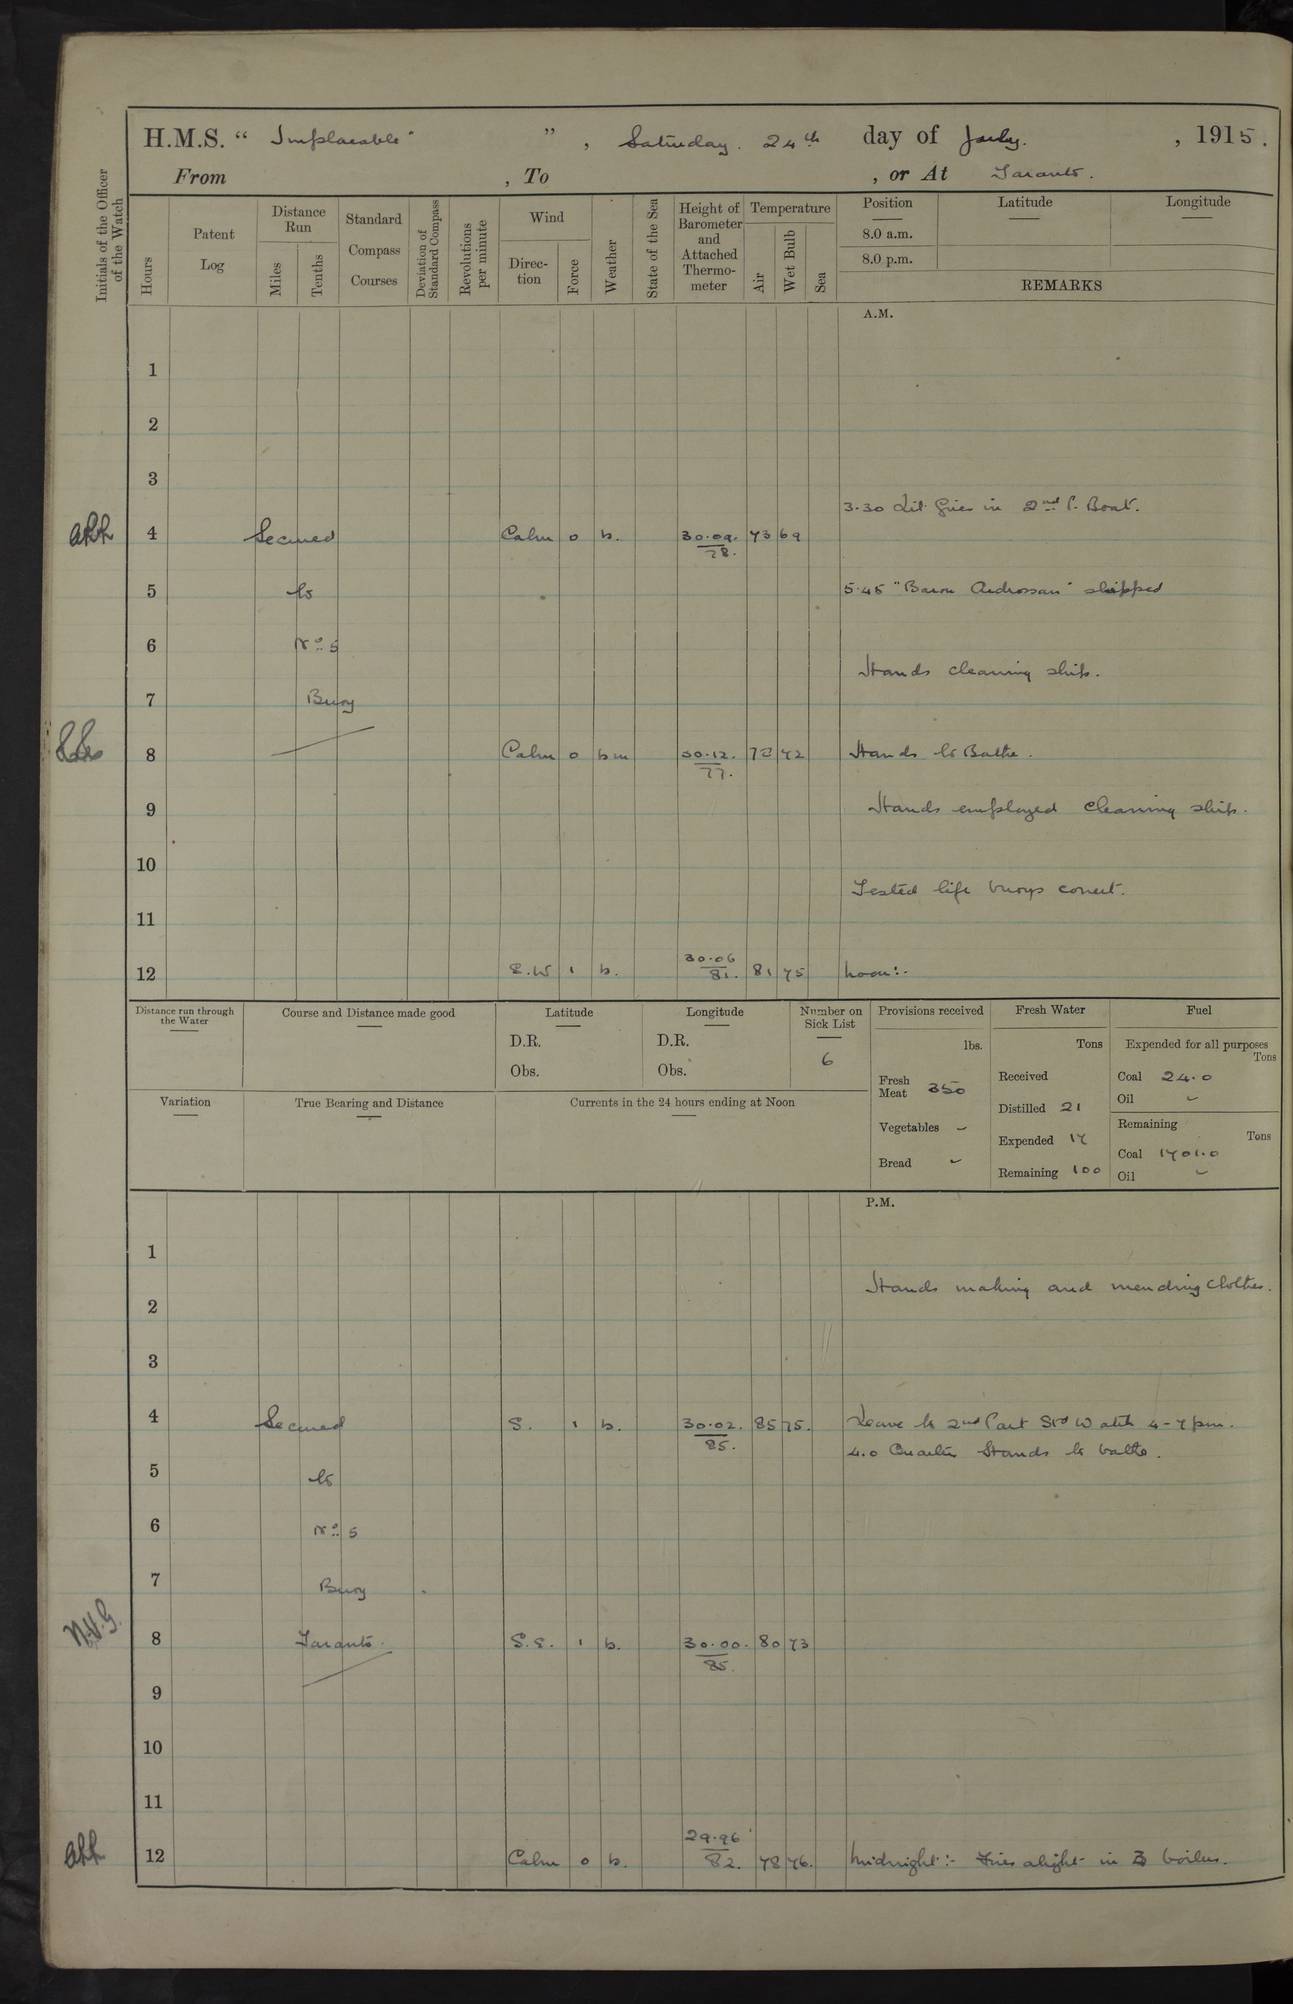 H.M.S. “ Implacable ” , Saturday. 24th day of July. , 1915.
From , To , or At Taranto.
Initials of the Officer of the Watch
Hours
Patent Log
Distance Run
Miles
Tenths
Standard Compass Courses
Deviation of Standard Compass
Revolutions per minute
Wind
Direc-tion
Force
Weather
State of the Sea
Height of Barometer and Attached Thermo-meter
Temperature
Air
Wet Bulb
Sea
Position
Latitude
Longitude
8.0 a.m.
8.0 p.m.
REMARKS
A.M.
1
2
3
3.30 Lit fires in 2nd P. Boat.
4 Secured Calm 0 b. 30.09. 78. 73 69
5 to 5.45 "Baron Ardrossan" slipped
6 No 5
Hands cleaning ship.
7 Buoy
8 Calm 0 bm 30.12. 77. 73 72 Hands to Bathe.
9 Hands employed cleaning ship.
10
Tested life buoys correct.
11
12 S.W 1 b. 30.06 81. 81 75 Noon:-
Distance run through the Water
Course and Distance made good
Latitude
D.R.
Obs.
Longitude
D.R.
Obs.
Number on Sick List
6
Provisions received
lbs.
Fresh Meat 350
Vegetables -
Bread -
Fresh Water
Tons
Received
Distilled 21
Expended 17
Remaining 100
Fuel
Expended for all purposes
Tons
Coal 24.0
Oil -
Remaining
Tons
Coal 1701.0
Oil -
Variation
True Bearing and Distance
Currents in the 24 hours ending at Noon
P.M.
1
Hands making and mending clothes.
2
3
4 Secured S. 1 b. 30.02. 85. 85 75. Leave to 2nd Part Std Watch 4-7 pm.
4.0 Quarters Hands to bathe.
5 to
6 No 5
7 Buoy
N.V.G.
8 Taranto. S.E. 1 b. 30.00. 85. 80 73
9
10
11
12 Calm 0 b. 29.96 82. 78 76. Midnight:- Fires alight in 3 boilers.